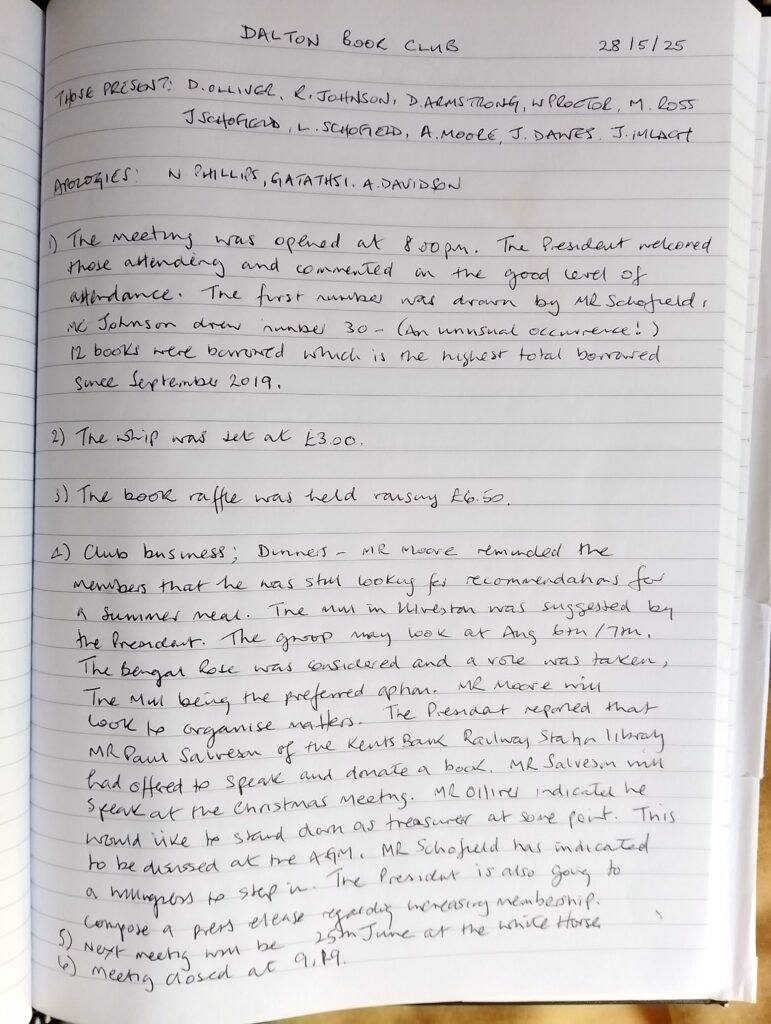 DALTON BOOK CLUB 28/5/25
THOSE PRESENT: D. OLLIVER, R. JOHNSON, D. ARMSTRONG, W PROCTOR, M. ROSS
J SCHOFIELD, L. SCHOFIELD, A. MOORE, J. DAWES. J. IMLACH
APOLOGIES: N PHILLIPS, A. DAVIDSON
1) The meeting was opened at 8.00pm. The President welcomed
those attending and commented on the good level of
attendance. The first number was drawn by MR Schofield,
Johnson drew number 30 - (An unusual occurrence!)
12 books were borrowed which is the highest total borrowed
since September 2019.
2) The whip was set at £3.00.
3) The book raffle was held raising £6.50.
4) Club business; Dinners - MR Moore reminded the
members that he was still looking for recommendations for
a summer meal. The Mill in Ulverston was suggested by
the President. The group may look at Aug 6th/7th.
The Bengal Rose was considered and a vote was taken,
The Mill being the preferred option. MR Moore will
look to organise matters. The President reported that
MR Paul Salveson of the Kents Bank Railway Station library
had offered to speak and donate a book. MR Salveson will
speak at the Christmas Meeting. MR Olliver indicated he
would like to stand down as treasurer at some point. This
to be discussed at the AGM. MR Schofield has indicated
a willingness to step in. The President is also going to
compose a press elease regarding increasing membership.
5) Next meeting will be 25th June at the White Horse
6) Meeting closed at 9.19.